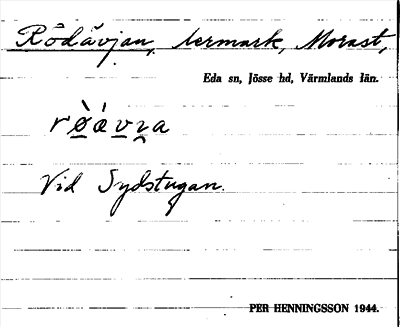 Rödävjan, kermark, Morast,
Eda sn, Jösse hd, Värmlands län.
rø̀ávɿa
Vid Sydstugan.
PER HENNINGSSON 1944.